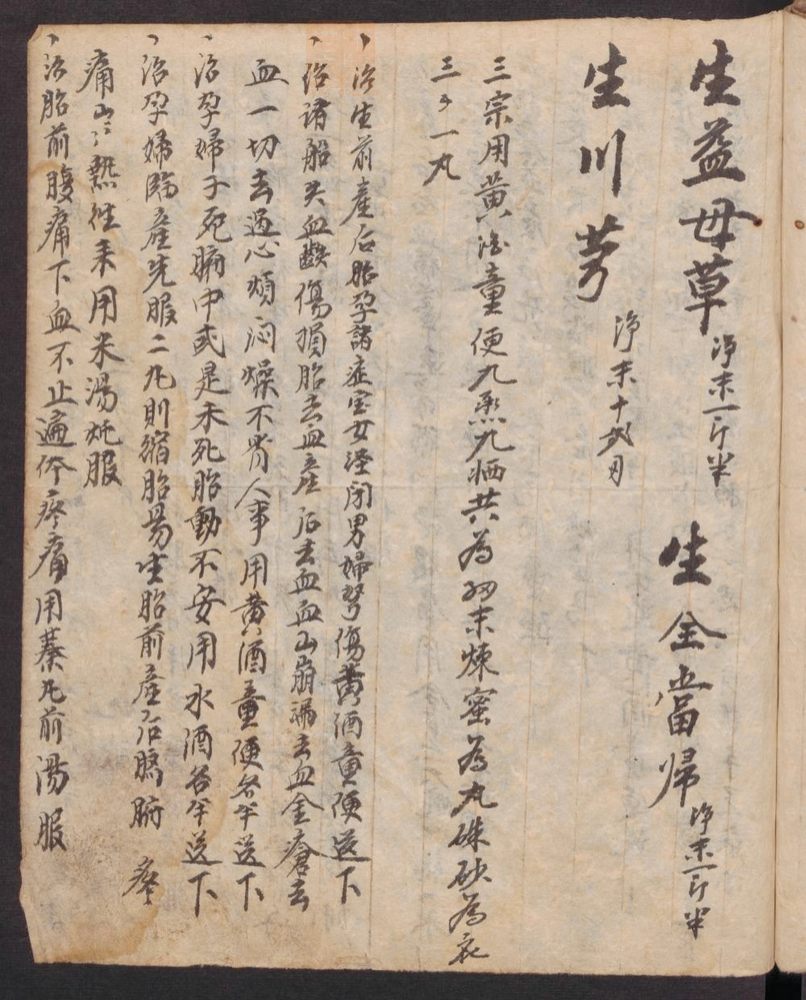 生益母草 净末一斤半 生全當帰 净末一斤半
生川芎 净末十二
三宗用黄酒童便九蒸九晒共為細末煉蜜為丸硃砂為衣
三 一丸
、治生前產后胎孕諸症室女経闭男婦劳傷黄酒童便送下
、治諸船失血跌傷損胎去血產后去血血山崩漏去血金瘡去
血一切去過心煩闷燥不省人事用黄酒童便各半送下
、治孕婦子死腑中或是未死胎動不安用水酒各半送下
、治孕婦臨產先服二九則縮胎易生胎前產后臍腑 疼
痛 熱 未用米湯 服
、治胎前腹痛下血不止遍体疼痛用蓁九前湯服